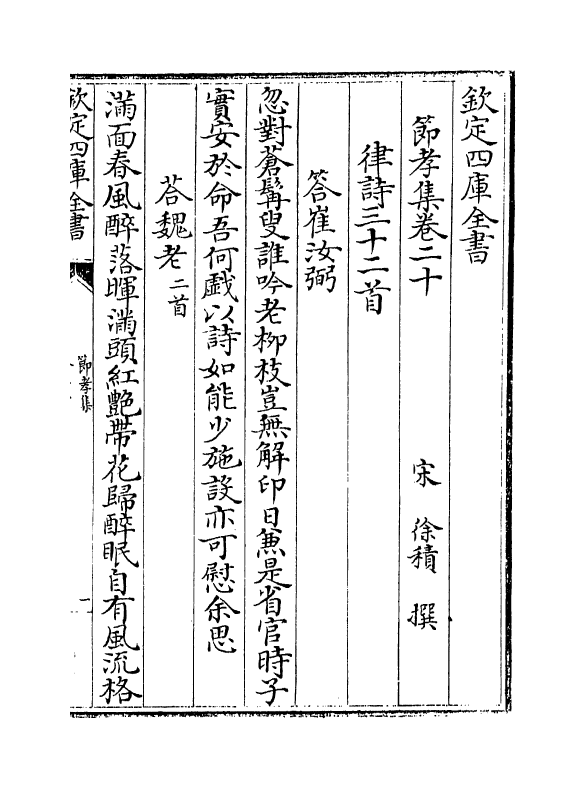 欽定四庫全書
節孝集卷二十
宋　徐積　撰
律詩三十二首
答崔汝弼
忽對蒼髯叟誰吟老柳枝豈無解印日兼是省官時子
實安於命吾何戲以詩如能少施設亦可慰余思
荅魏老二首
滿面春風醉落暉滿頭紅艶帶花歸醉眠自有風流格
欽定四庫全書
節孝集
一